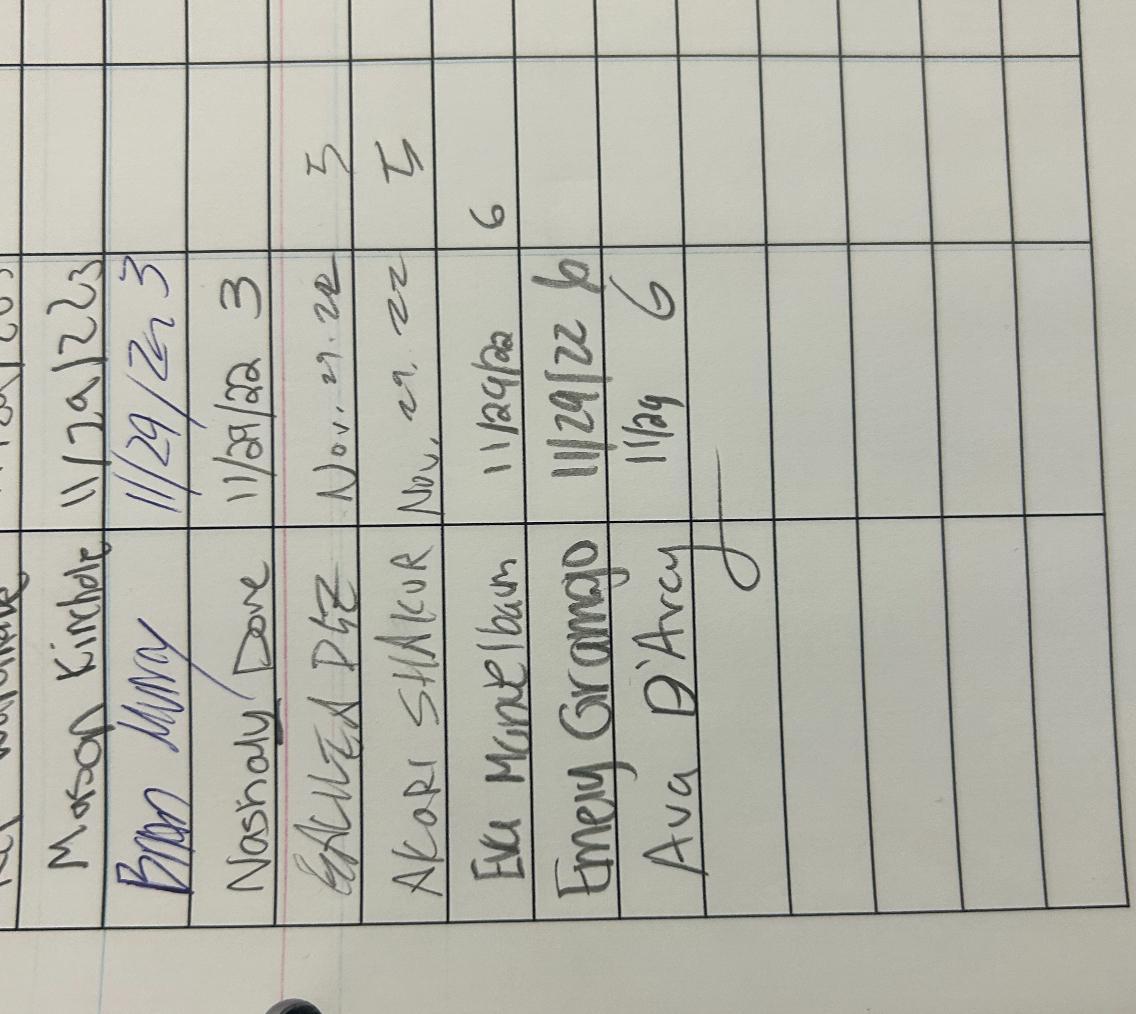 Mason Kinchole 11/29/22 3
Brian Murray 11/29/22 3
Nashaly Dove 11/29/22 3
Nov. 29. 22 5
AKARI SHAKUR Nov. 29. 22 5
Eva Mandelbaum 11/29/22 6
Emery Gramajo 11/29/22 6
Ava D'Arcy 11/29 6